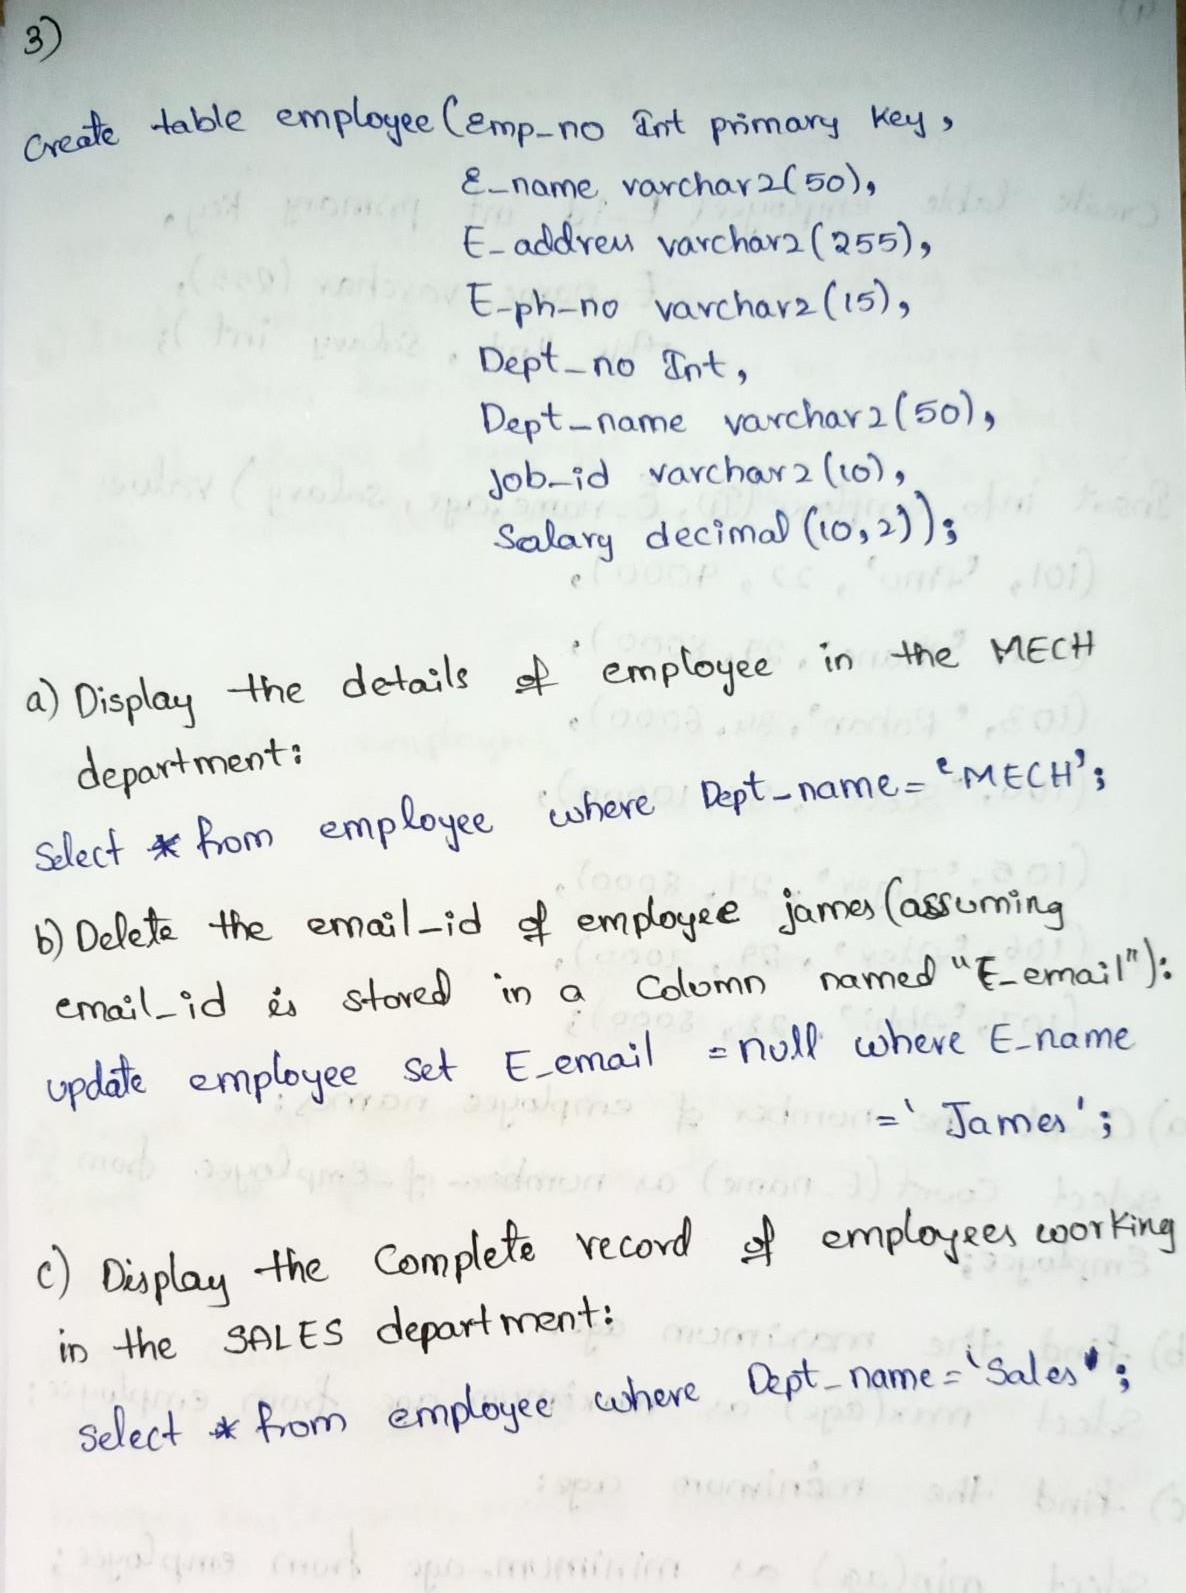 3)
Create table employee (Emp_no Int primary key,
E_name varchar2(50),
E_address varchar2(255),
E-ph-no varchar2(15),
Dept_no Int,
Dept_name varchar2(50),
job_id varchar2(10),
Salary decimal(10,2));
a) Display the details of employee in the MECH
department:
Select * from employee where Dept_name = 'MECH';
b) Delete the email_id of employee james (assuming
email_id is stored in a Column named "E_email"):
update employee set E_email = null where E_name
= 'James';
c) Display the Complete record of employees working
in the SALES department:
select * from employee where Dept_name = 'Sales';